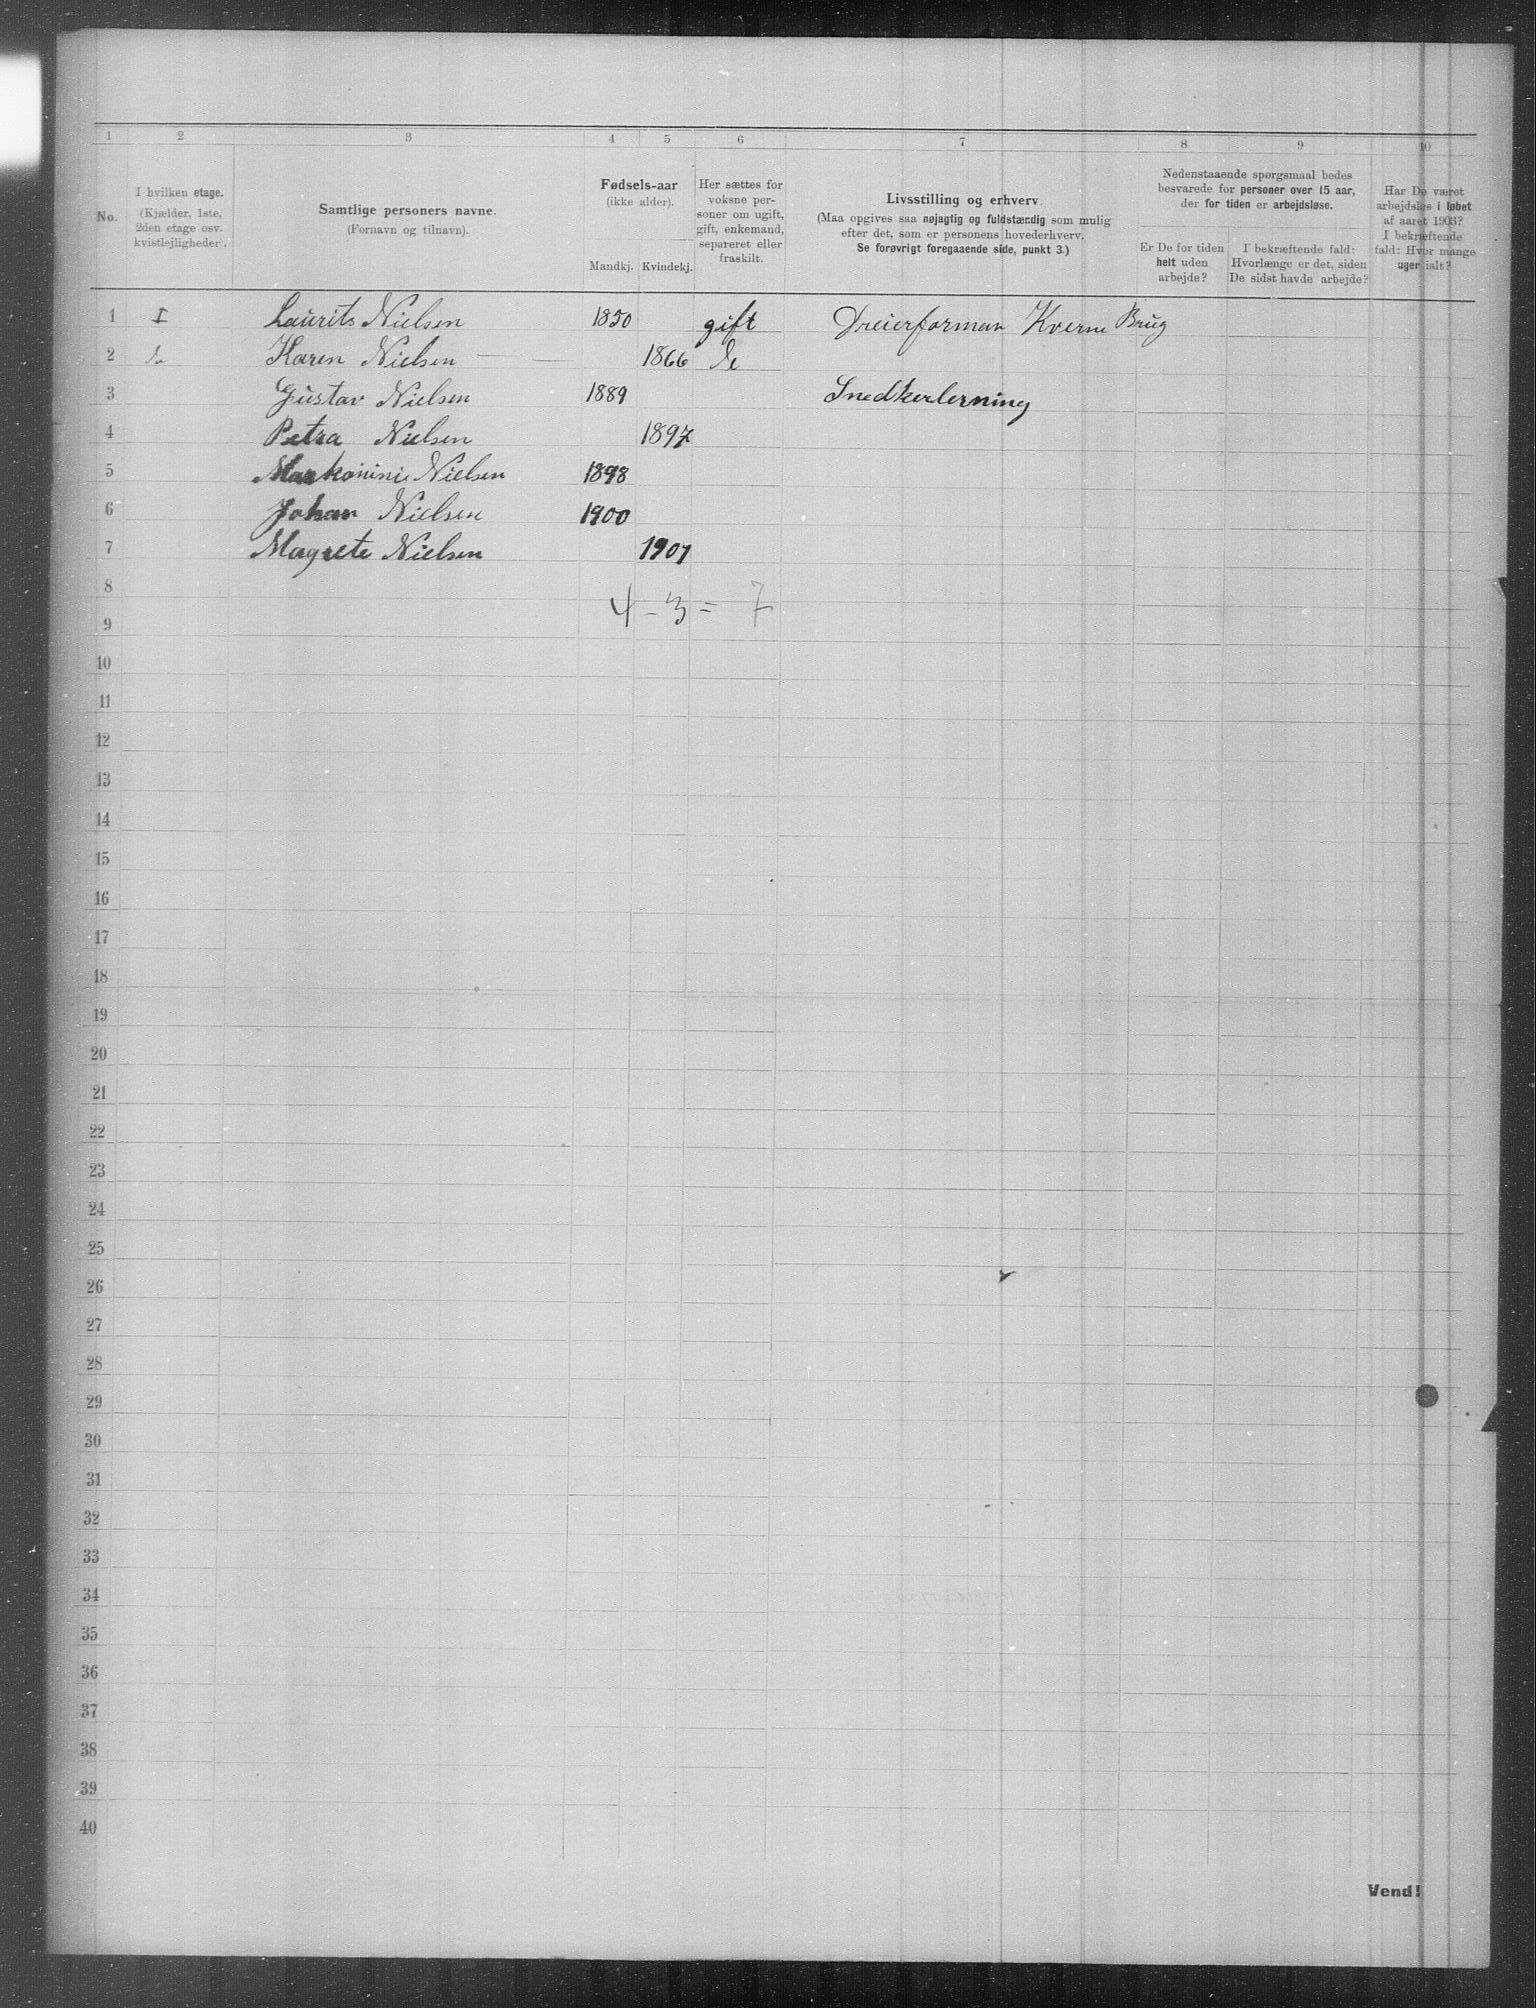 1 2 3 4 5 6 7 8 9 10
No.
I hvilken etage.
(Kjælder, 1ste,
2den etage osv.
kvistlejligheder).
Samtlige personers navne.
(Fornavn og tilnavn).
Fødsels-aar
(ikke alder).
Mandkj. Kvindekj.
Her sættes for
voksne per-
soner om ugift,
gift, enkemand,
separeret eller
fraskilt.
Livsstilling og erhverv.
(Maa opgives saa nøjagtig og fuldstændig som mulig
efter det, som er personens hovederhverv.
Se forøvrigt foregaaende side, punkt 3.)
Nedenstaaende spørgsmaal bedes
besvarede for personer over 15 aar,
der for tiden er arbejdsløse.
Er De for tiden
helt uden
arbejde?
I bekræftende fald:
Hvorlænge er det, siden
De sidst havde arbejde?
Har De været
arbejdsløs i løbet
af aaret 1903?
I bekræftende
fald: Hvor mange
uger ialt?
1 I Laurits Nielsen 1850 gift Dreierforman Kverne Brug
2 do Karen Nielsen 1866 do
3 Gustav Nielsen 1889 Snedkerlerning
4 Petra Nielsen 1897
5 Nielsen 1898
6 Johan Nielsen 1900
7 Magrete Nielsen 1901
8
4 - 3 = 7
9
10
11
12
13
14
15
16
17
18
19
20
21
22
23
24
25
26
27
28
29
30
31
32
33
34
35
36
37
38
39
40
Vend!